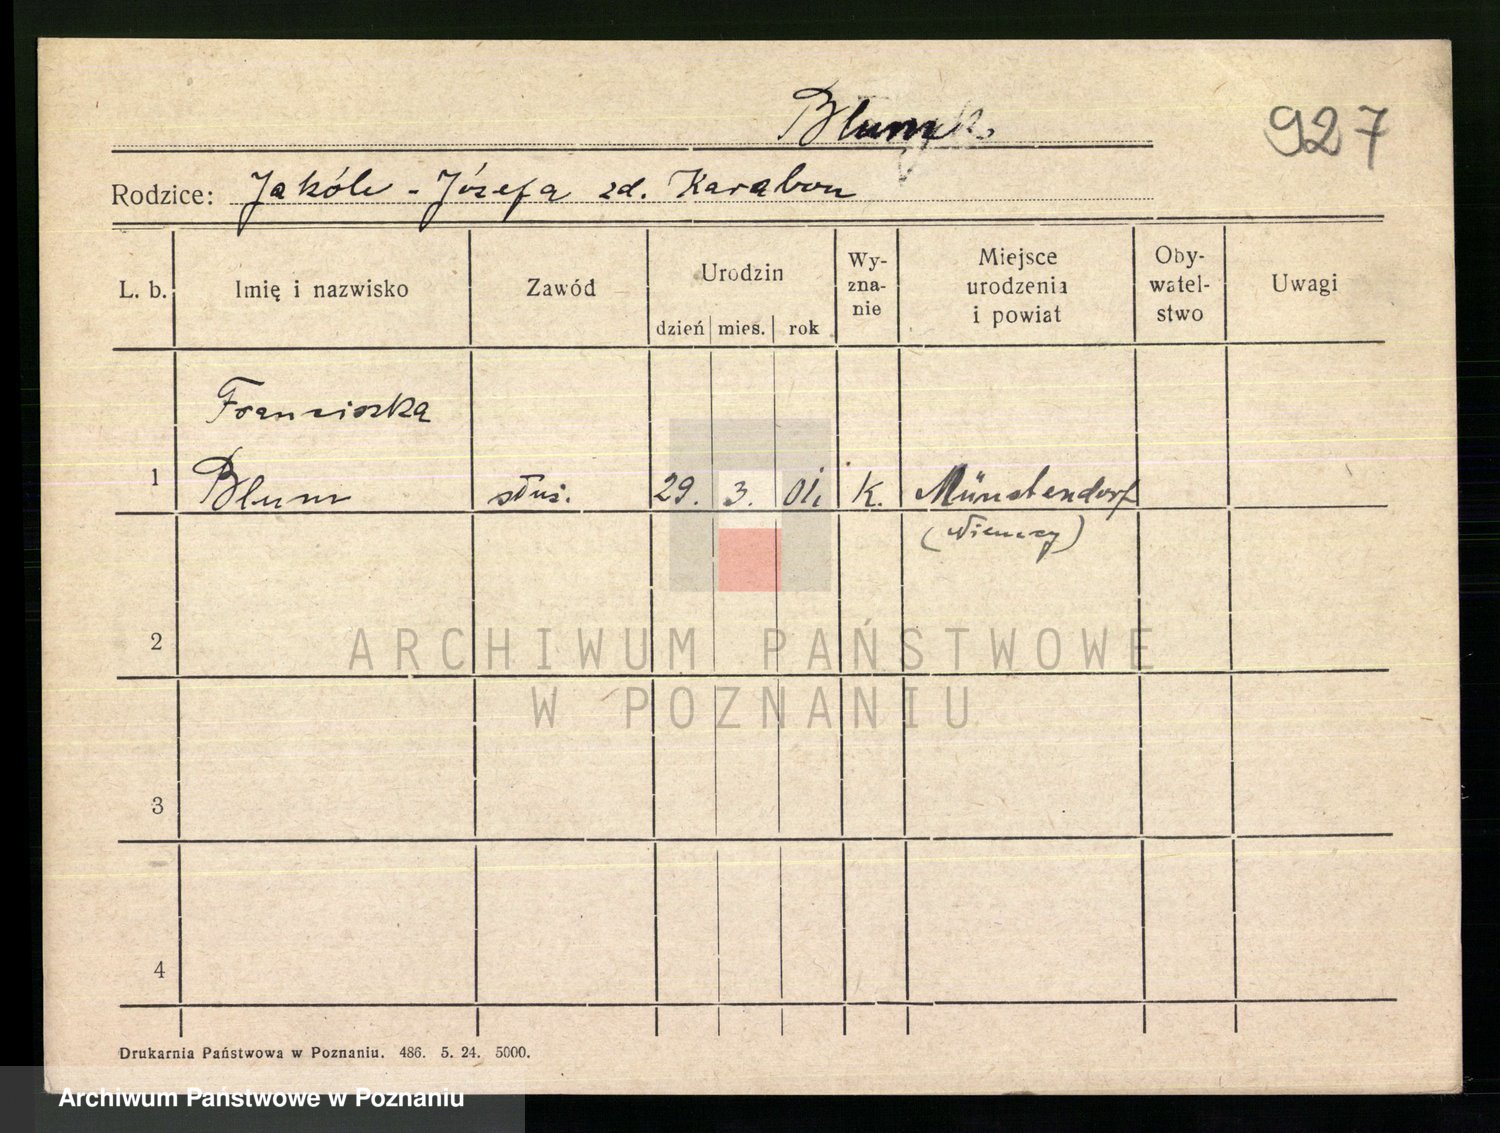 Blum
927
Rodzice: Jakób - Józefa zd. Karabon
L. b. Imię i nazwisko Zawód Urodzin dzień mies. rok Wy-zna-nie Miejsce urodzenia i powiat Oby-watel-stwo Uwagi
Franciszka
1 Blum służ. 29. 3. 01. K. Münstendorf
(Niemcy)
2
ARCHIWUM PAŃSTWOWE
W POZNANIU
3
4
Drukarnia Państwowa w Poznaniu. 486. 5. 24. 5000.
Archiwum Państwowe w Poznaniu